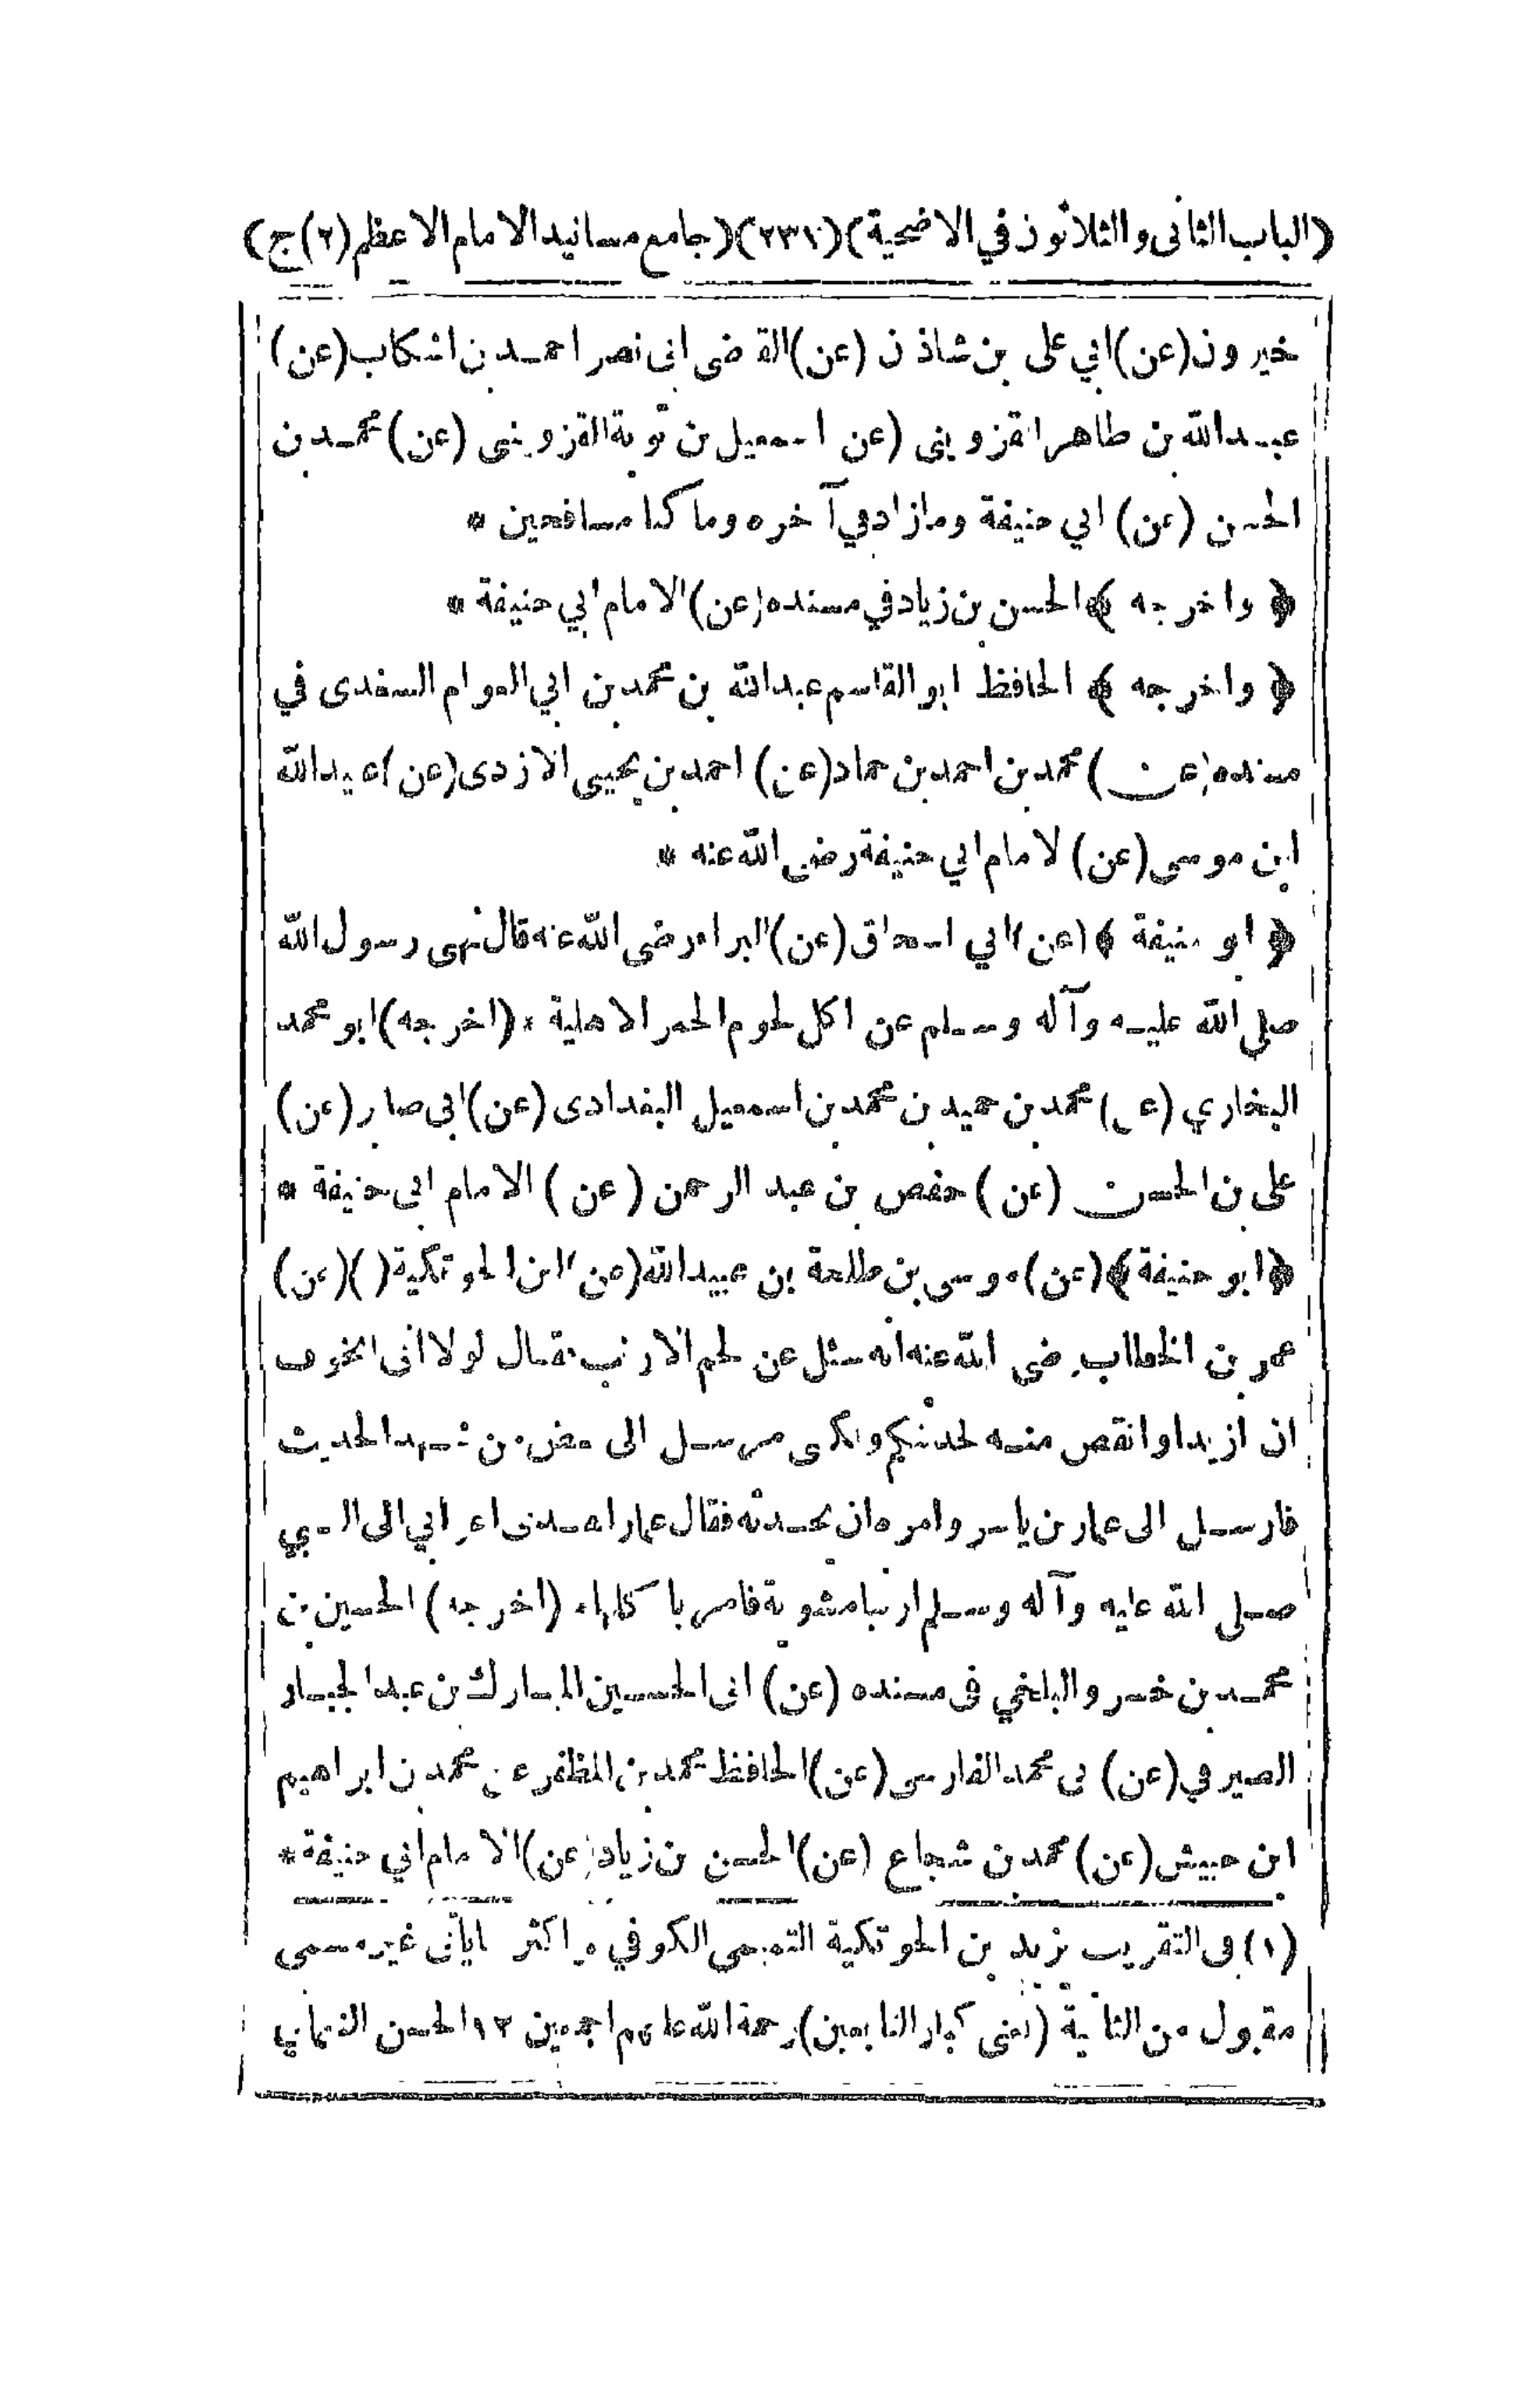 (الباب الثانى والثلاثون في الاضحية)(٢٣١)(جامع مسانيد الامام الاعظم (٢) ج)
خيرون (عن) ابي على بن شاذن (عن) القاضى ابى نصر احمد بن اشكاب (عن)
عبد الله بن طاهر القزوينى (عن اسمعيل بن توبة القزوينى (عن) محمد بن
الحسن (عن) ابي حنيفة وما زاد في آخره وما كنا مسافحين *
﴿ واخرجه ﴾ الحسن بن زياد في مسنده (عن) الامام ابي حنيفة *
﴿ واخرجه ﴾ الحافظ ابو القاسم عبد الله بن محمد بن ابي العوام السغدى في
مسنده (عن) محمد بن احمد بن حماد (عن) احمد بن يحيى الازدى (عن) عبيد الله
ابن موسى (عن) الامام ابي حنيفة رضى الله عنه *
﴿ ابو حنيفة ﴾ (عن) ابي اسحاق (عن) البراء رضى الله عنه قال نهى رسول الله
صلى الله عليه وآله وسلم عن اكل لحوم الحمر الاهلية * (اخرجه) ابو محمد
البخاري (عن) محمد بن حميد بن محمد بن اسمعيل البغدادى (عن) ابى صابر (عن)
على بن الحسن (عن) حفص بن عبد الرحمن (عن) الامام ابى حنيفة *
﴿ ابو حنيفة ﴾ (عن) موسى بن طلحة بن عبيد الله (عن) ابن الحوتكية ( ) (عن)
عمر بن الخطاب رضى الله عنه انه سئل عن لحم الارنب فقال لولا انى اتخوف
ان ازيد او انقص منه لحدثتكم ولكنى مرسل الى بعض من شهد الحديث
فارسل الى عمار بن ياسر وامره ان يحدثه فقال عمار اهدى اعرابي الى النبي
صلى الله عليه وآله وسلم ارنبا مشوية فامر باكلها * (اخرجه) الحسين بن
محمد بن خسرو البلخي فى مسنده (عن) ابى الحسين المبارك بن عبد الجبار
الصيرفي (عن) ابى محمد الفارسى (عن) الحافظ محمد بن المظفر عن محمد بن ابراهيم
ابن حبيش (عن) محمد بن شجاع (عن) الحسن بن زياد (عن) الامام ابي حنيفة *
(١) فى التقريب يزيد بن الحوتكية التميمى الكوفي واكثر ما يأتى غير مسمى
مقبول من الثانية (يعنى كبار التابعين) رحمة الله عليهم اجمعين ١٢ الحسن النعمانى